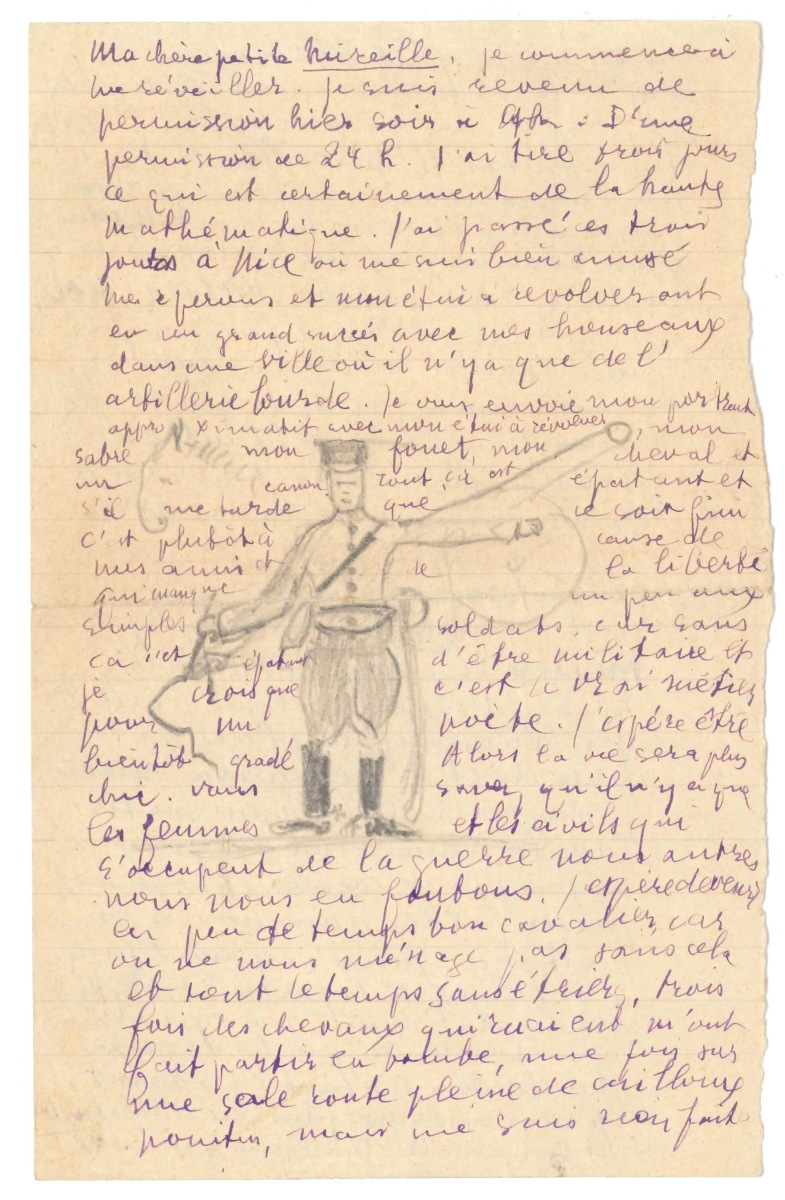 Ma chère petite Mireille, je commence à
me réveiller. Je suis revenu de
permission hier soir à : D'une
permission de 24 h. J'ai tiré trois jours
ce qui est certainement de la haute
mathématique. J'ai passé ces trois
jours à Nice où me suis bien amusé
mes éperons et mon étui à revolver ont
eu un grand succès avec mes houseaux
dans une ville où il n'y a que de l'
artillerie lourde. Je vous envoie mon portrait
approximatif avec mon étui à révolver, mon
sabre mon fouet, mon cheval et
un canon. Tout ça est épatant et
s'il me tarde que ce soit fini
c'est plutôt à cause de
mes amis et de la liberté
qui manque un peu aux
simples soldats, car sans
ça c'est épatant d'être militaire et
je crois que c'est le vrai métier
pour un poète. J'espère être
bientôt gradé Alors la vie sera plus
chic. Vous savez qu'il n'y a que
les femmes et les civils qui
s'occupent de la guerre nous autres
nous nous en foutons. J'espère devenir
en peu de temps bon cavalier, car
on ne nous ménage pas sans cela
et tout le temps sans étriers, trois
fois des chevaux qui ruaient m'ont
fait partir en bombe, une fois sur
une sale route pleine de cailloux
pointus, mais me suis rien fait